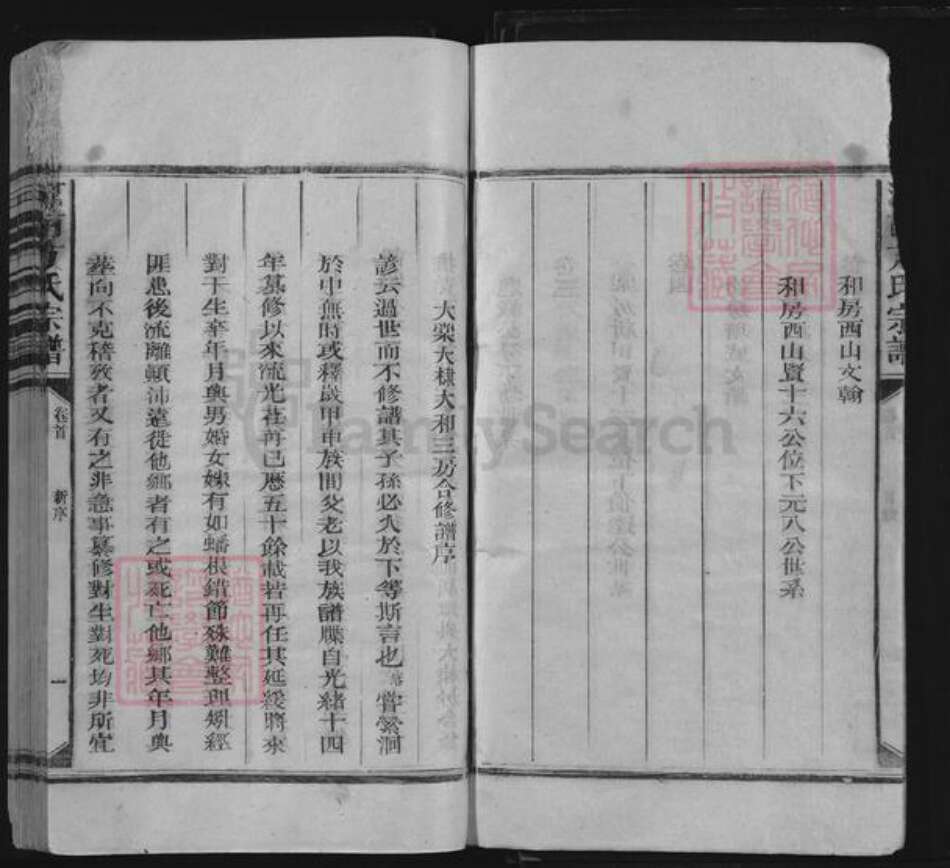 和房西山文翰
和房西山暨十六公位下元八公世系
大榮大棣大和三房合修譜序
諺云過世而不修譜其子孫必欠於下等斯言也 嘗縈洄
於中無時或釋歲甲申族間父老以我族譜牒自光緒十四
年纂修以來流光荏苒已歷五十餘載若再任其延緩將來
對于生卒年月與男婚女嫁有如蟠根錯節殊難整理矧經
匪患後流離顛沛遠徙他鄉者有之或死亡他鄉其年月與
塋向不克稽攷者又有之非急事纂修對生對死均非所宜
氏宗譜
卷首
新序
一
FamilySearch